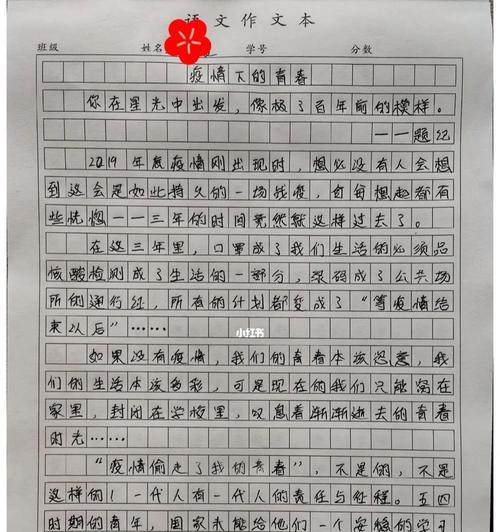 语文作文本
班级 姓名 学号 分数
疫情下的青春
你在星光中出发，像极了百年前的模样。
——题记
2019年底疫情刚出现时，想必没有人会想
到这会是如此持久的一场战疫，每每想起都有
些恍惚——三年的时间竟然就这样过去了。
在这三年里，口罩成了我们生活的必须品
核酸检测成了生活的一部分，绿码成了公共场
所的通行证，所有的计划都变成了“等疫情结
束以后”……
小红书
如果没有疫情，我们的青春本该恣意，我
们的生活本该多彩，可是现在的我们只能窝在
家里，封闭在学校里，叹息着渐渐逝去的青春
时光……
“疫情偷走了我的青春”，不是的，不是
这样的！一代人有一代人的责任与征程。五四
时期的青年，国家未能给他们一个安稳的学习